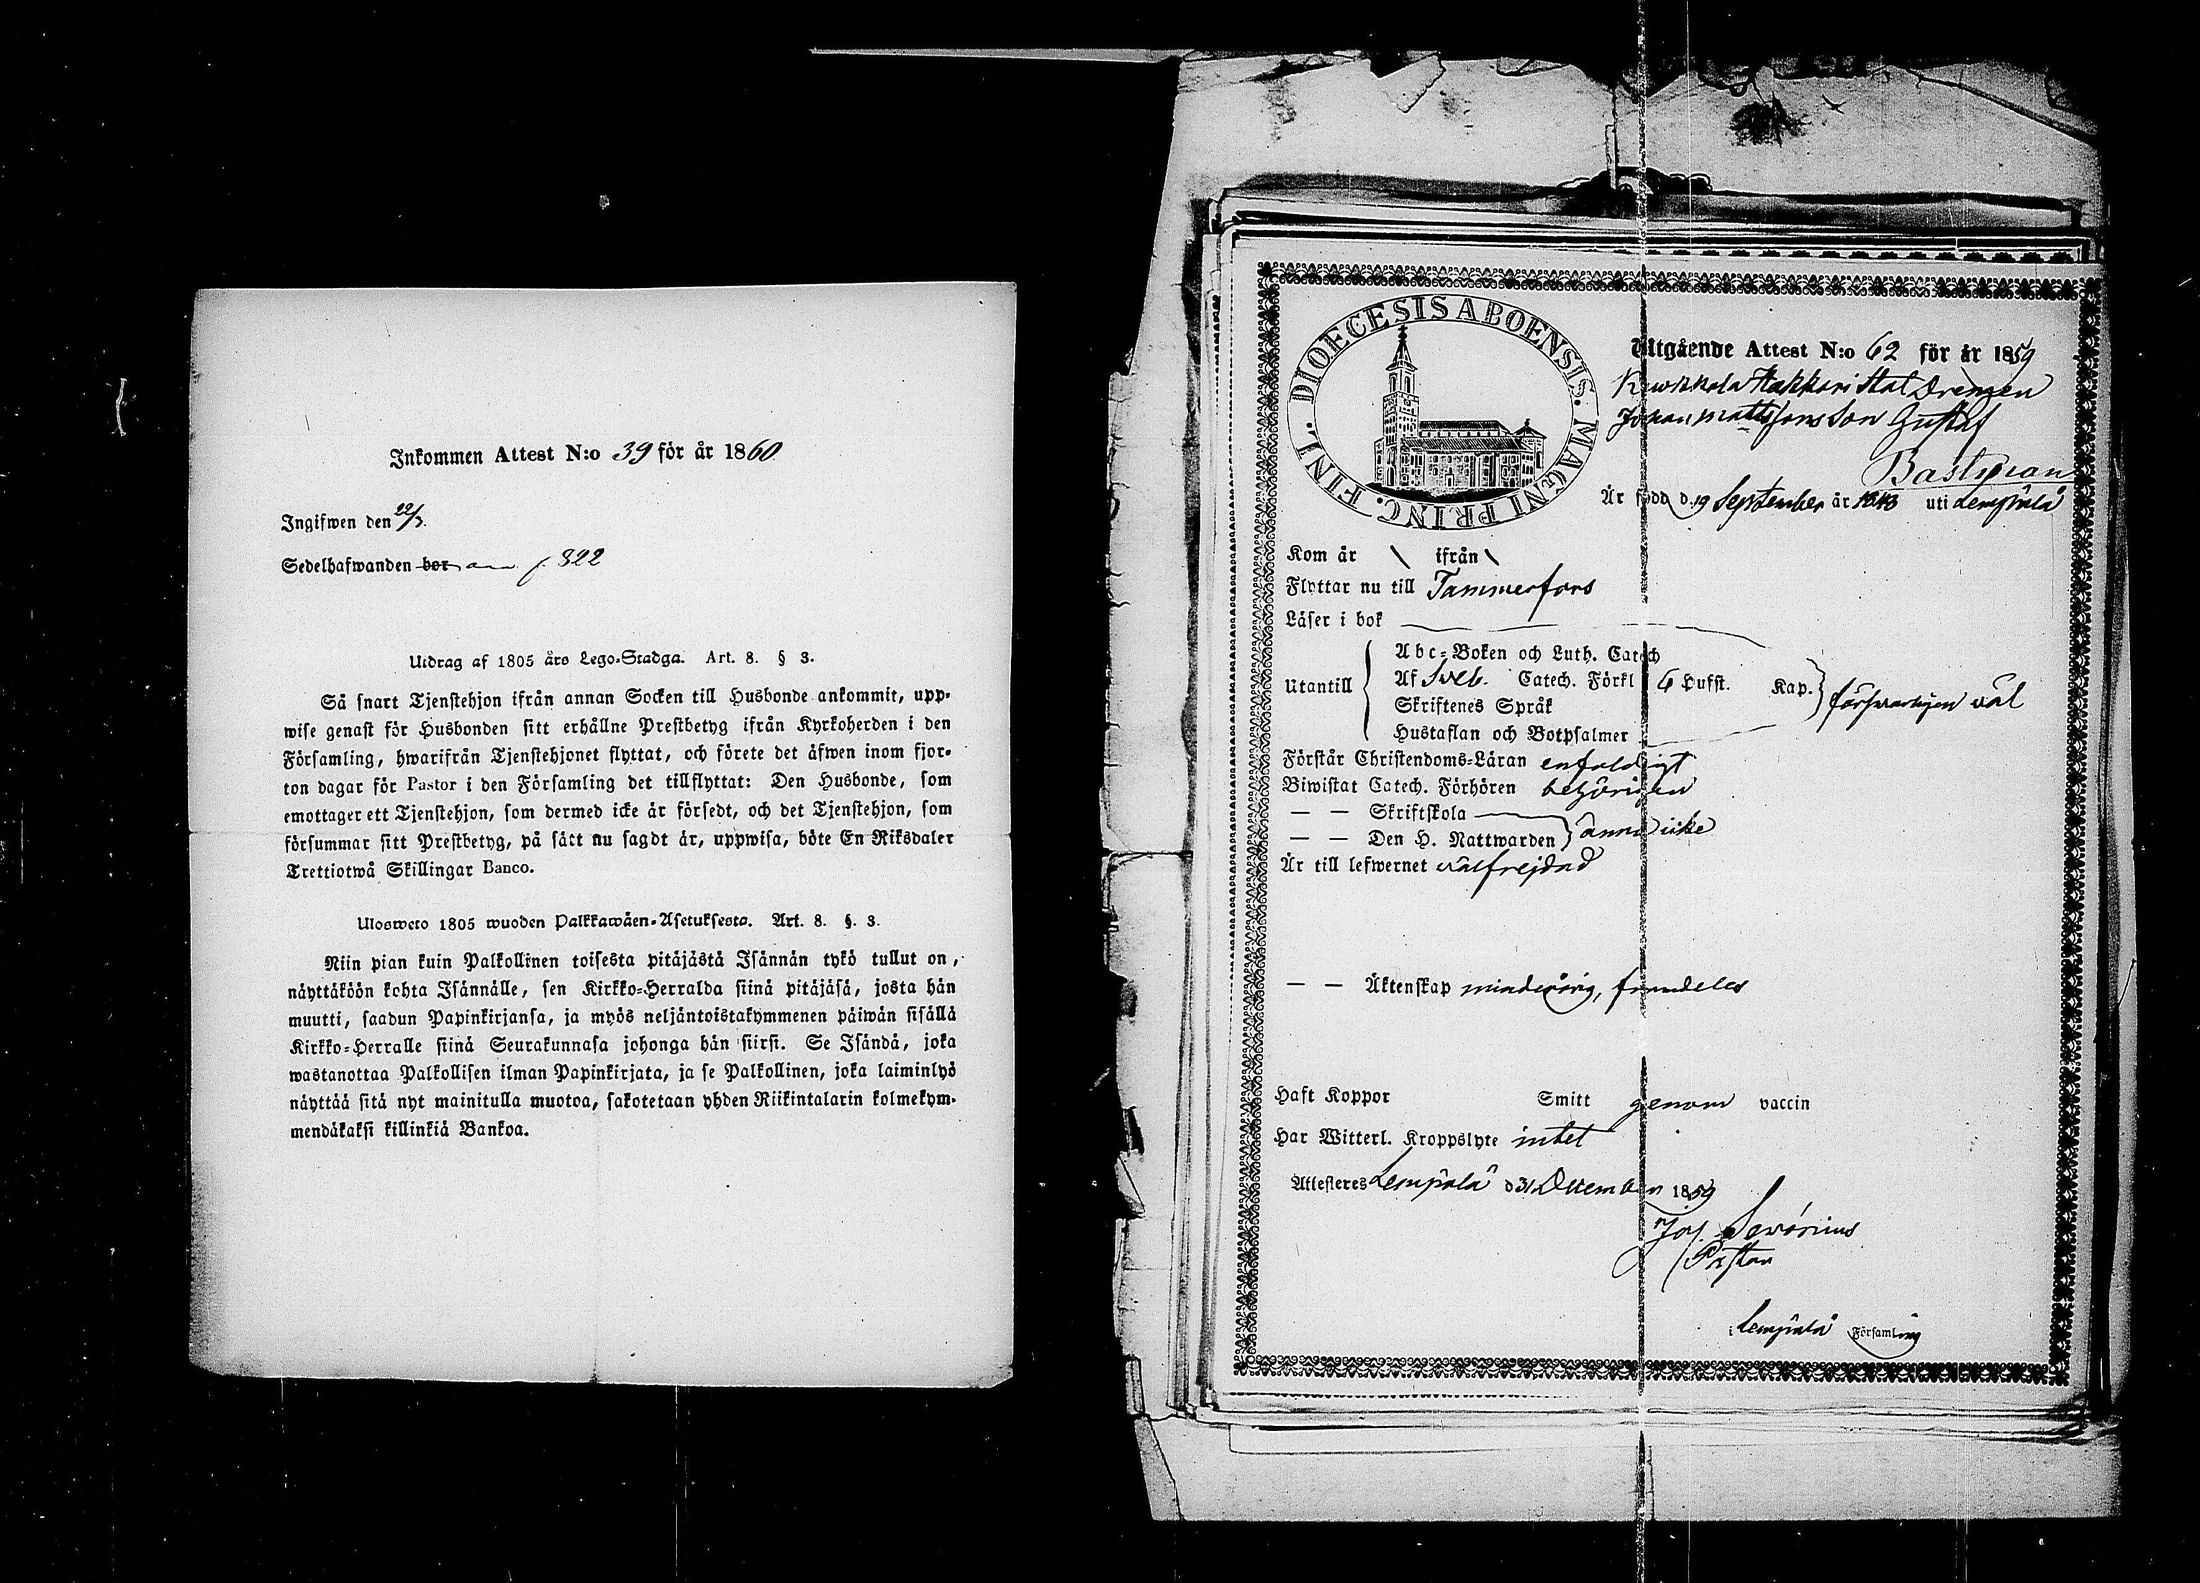 Inkommen Attest N:o 39 för år 1860
Ingifwen den 22/3.
Sedelhafwanden bor ann p. 822
Utdrag af 1805 års Lego-Stadga. Art. 8. § 3.
Så snart Tjenstehjon ifrån annan Socken till Husbonde ankommit, upp-
wise genast för Husbonden sitt erhållne Prestbetyg ifrån Kyrkoherden i den
Församling, hwarifrån Tjenstehjonet flyttat, och förete det äfwen inom fjor-
ton dagar för Pastor i den Församling det tillflyttat: Den Husbonde, som
emottager ett Tjenstehjon, som dermed icke är försedt, och det Tjenstehjon, som
försummar sitt Prestbetyg, på sätt nu sagdt är, uppwisa, böte En Riksdaler
Trettiotwå Skillingar Banco.
Ulosweto 1805 wuoden Palkkawäen-Asetuksesta. Art. 8. §. 3.
Niin pian kuin Palkollinen toisesta pitäjästä Isännän tykö tullut on,
näyttäköön kohta Isännälle, sen Kirkko-Herralda siinä pitäjäsä, josta hän
muutti, saadun Papinkirjansa, ja myös neljäntoistakymmenen päiwän sisällä
Kirkko-Herralle siinä Seurakunnasa johonga hän siirsi. Se Isändä, joka
wastanottaa Palkollisen ilman Papinkirjata, ja se Palkollinen, joka laiminlyö
näyttää sitä nyt mainitulla muotoa, sakotetaan yhden Riikintalarin kolmekym-
mendäkaksi killinkiä Bankoa.
DIOECESIS ABOENSIS. MAGNI PRINC. FINL.
Utgående Attest N:o 62 för år 1859
Hakkari Stat Drengen
Johan Mattssons Son Gustaf
Bastman
Är född d. 19 September år 1843 uti Lempälä
Kom år \ ifrån \
Flyttar nu till Tammerfors
Läser i bok
Utantill
Abc-Boken och Luth. Catech
Af Sveb. Catech. Förkl 6 Hufst. Kap.
Skriftenes Språk
Hustaflan och Botpsalmer
försvarligen väl
Förstår Christendoms-Läran enfaldigt
Biwistat Catech. Förhören behörigen
— — Skriftskola
— — Den H. Nattwarden
ännu icke
Är till lefwernet välfrejdad
— — Äktenskap minderårig,
Haft Koppor Smitt genom vaccin
Har Witterl. Kroppslyte intet
Attesteres Lempälä d 31 December 1859
Jos. Sevonius
Pastor
i Lempälä Församling